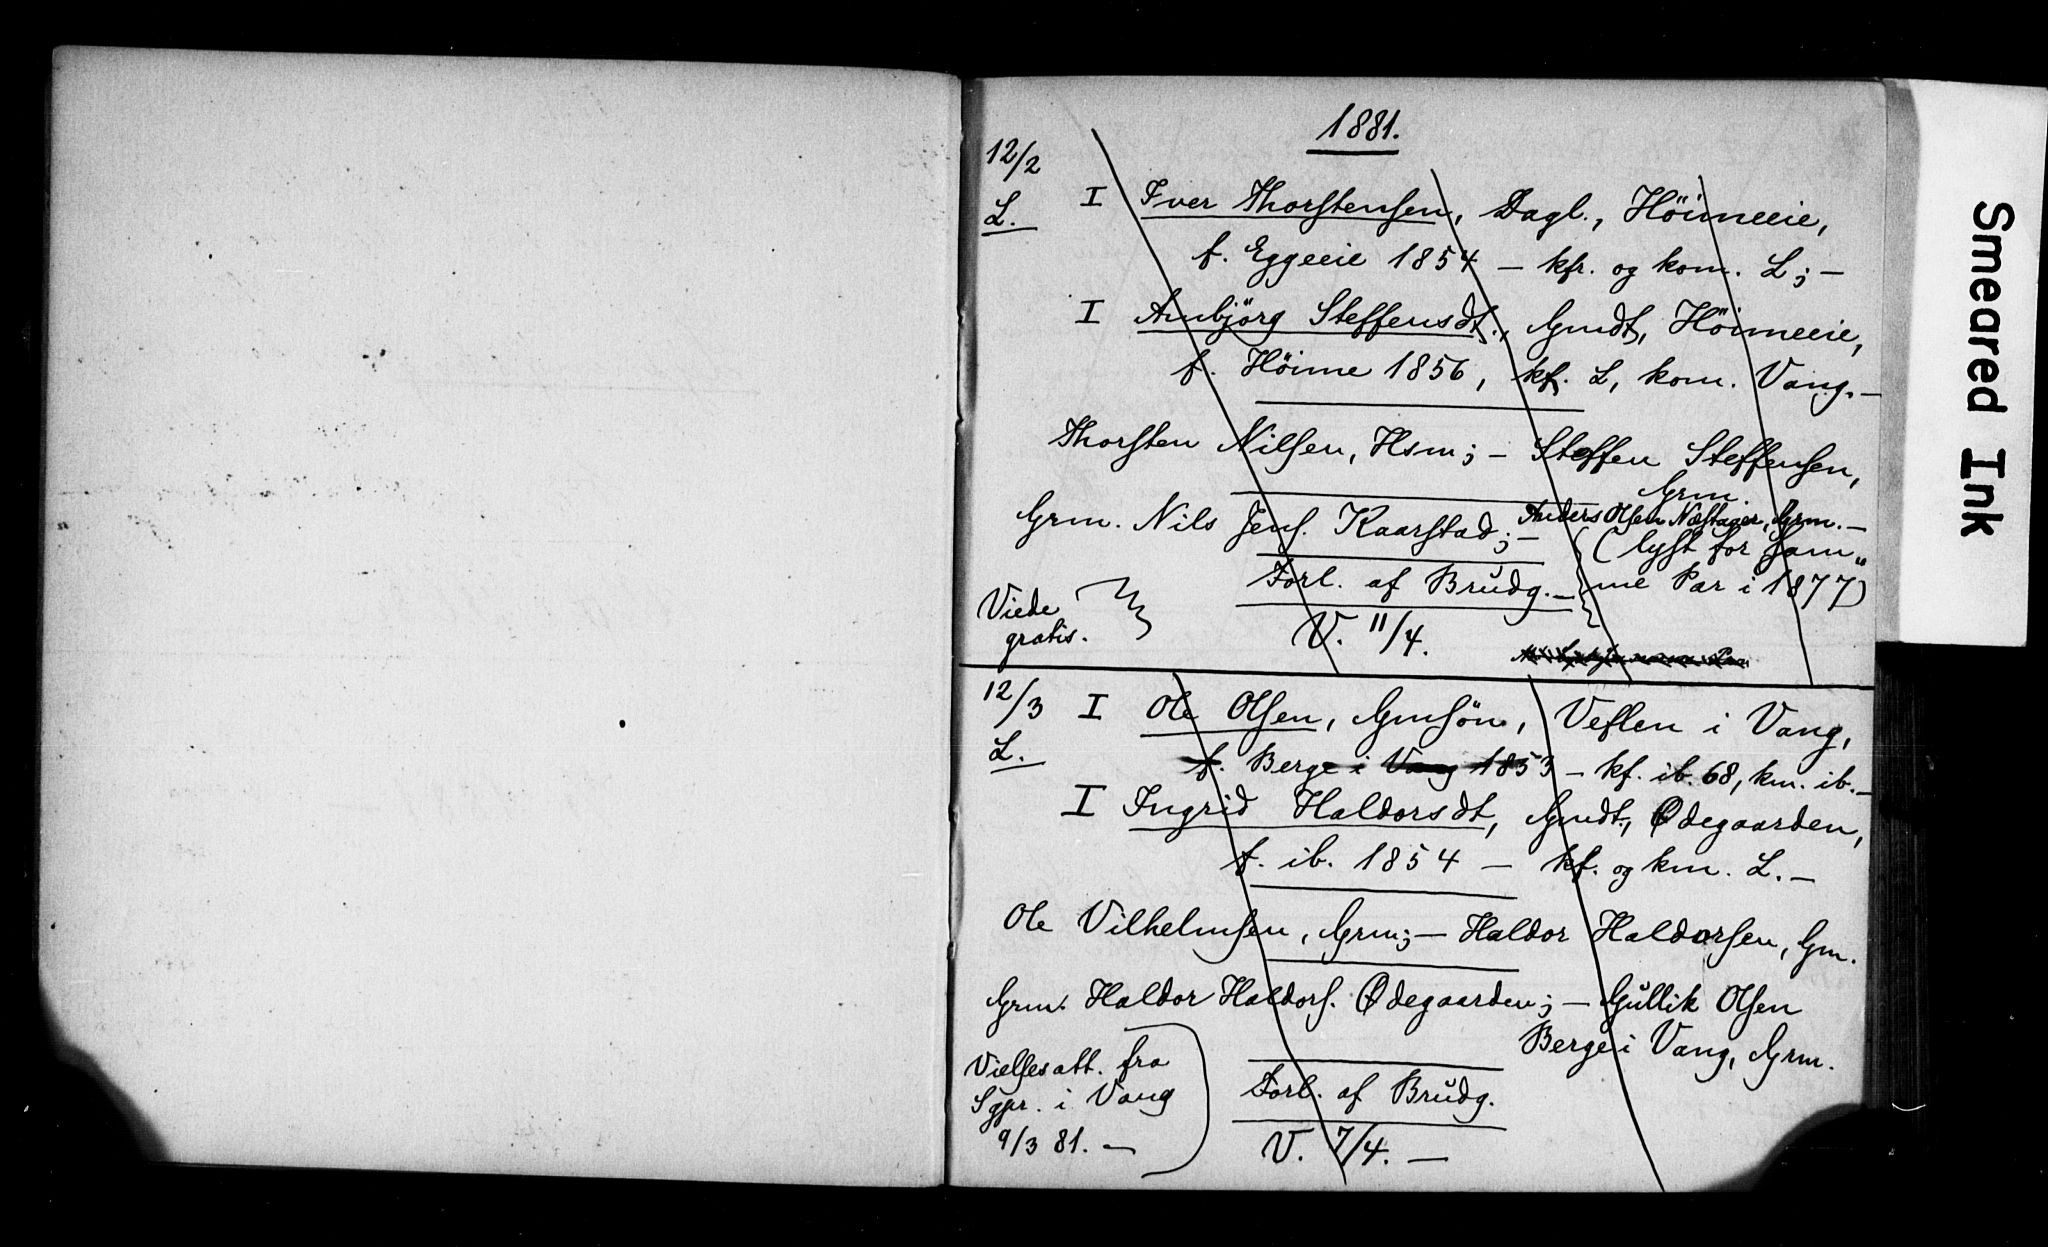 1881.
12/2
L.
I Iver Thorstensen, Dagl., Höimeeie,
f. Eggeeie 1854 – kfr. og kom. L; –
I Ambjörg Steffensdt., Gmdt, Höimeeie,
f. Höime 1856, kf. L, kom. Vang. –
Thorsten Nilsen, Hsm; – Steffen Steffensen,
Grm.
Grm. Nils Jens. Kaarstad; – Anders Olsen Næstager, Grm. –
(lyst for sam„
Forl. af Brudg. – me Par i 1877)
Viede
gratis.
V. 11/4.
12/3
L.
I Ole Olsen, Gmsön, Veflen i Vang,
f. Berge i Vang 1853 – kf. ib. 68, km. ib. –
I Ingrid Haldorsdt, Gmdt., Ødegaarden,
f. ib. 1854 – kf. og km. L. –
Ole Vilhelmsen, Grm; – Haldor Haldorsen, Gm.
Grm. Haldor Haldors. Ødegaarden; – Gullik Olsen
Berge i Vang, Grm.
Vielsesatt. fra
Sgpr. i Vang
9/3 81. –
Forl. af Brudg.
V. 7/4. –
Smeared Ink